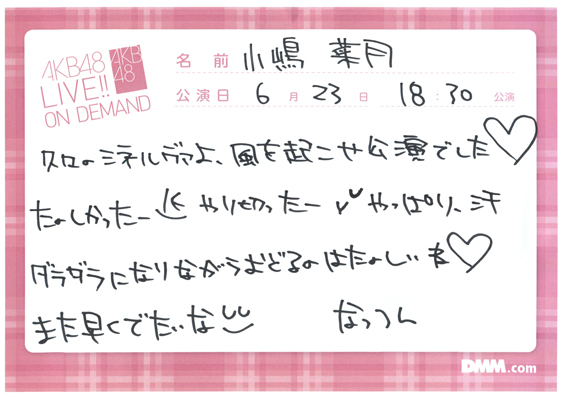 AKB48
LIVE!!
ON DEMAND
AKB
48
名前 小嶋 菜月
公演日 6月23日 18:30 公演
久々のミネルヴァよ、風を起こせ公演でした♡
たのしかったー やりきったー やっぱり、汗
ダラダラになりながらおどるのはたのしいね♡
また早くでたいな
なっつん
DMM.com